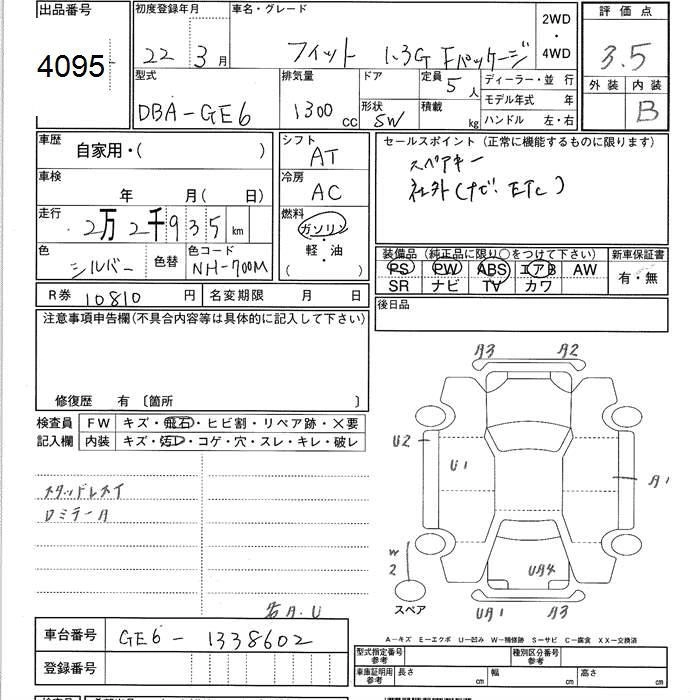 出品番号 初度登録年月 車名・グレード 2WD ・ 4WD 評価点
4095 22年 3月 フィット 1.3G Fパッケージ 3.5
型式 排気量 ドア 定員 5人 ディーラー・並 行 外装 内装
DBA-GE6 1300cc 形状 SW 積載 kg モデル年式 年 B
ハンドル 左・右
車歴 自家用・( ) シフト AT セールスポイント (正常に機能するものに限ります)
スペアキー
車検 年 月( 日) 冷房 AC 社外(ナビ、ETC)
走行 2万2千935km 燃料 ガソリン 軽・油 ( )
色 シルバー 色替 色コード NH-700M
装備品 (純正品に限り○をつけて下さい) 新車保証書
PS PW ABS エアB AW 有・無
SR ナビ TV カワ
R券 10810円 名変期限 月 日 後日品
注意事項申告欄(不具合内容等は具体的に記入して下さい)
修復歴 有 〔箇所 〕
検査員 FW キズ・飛石・ヒビ割・リペア跡・×要
記入欄 内装 キズ・汚レ・コゲ・穴・スレ・キレ・破レ
A3 A2
U2 U1 A1
スタッドレスイ
ロミテーA
W2 UA4
スペア
右A.U UA1 A3
車台番号 GE6-1338602
A−キズ E−エクボ U−凹み W−補修跡 S−サビ C−腐食 XX−交換済
登録番号 型式指定番号 参考 種別区分番号 参考
車庫証明用 参考 長さ cm 幅 cm 高さ cm